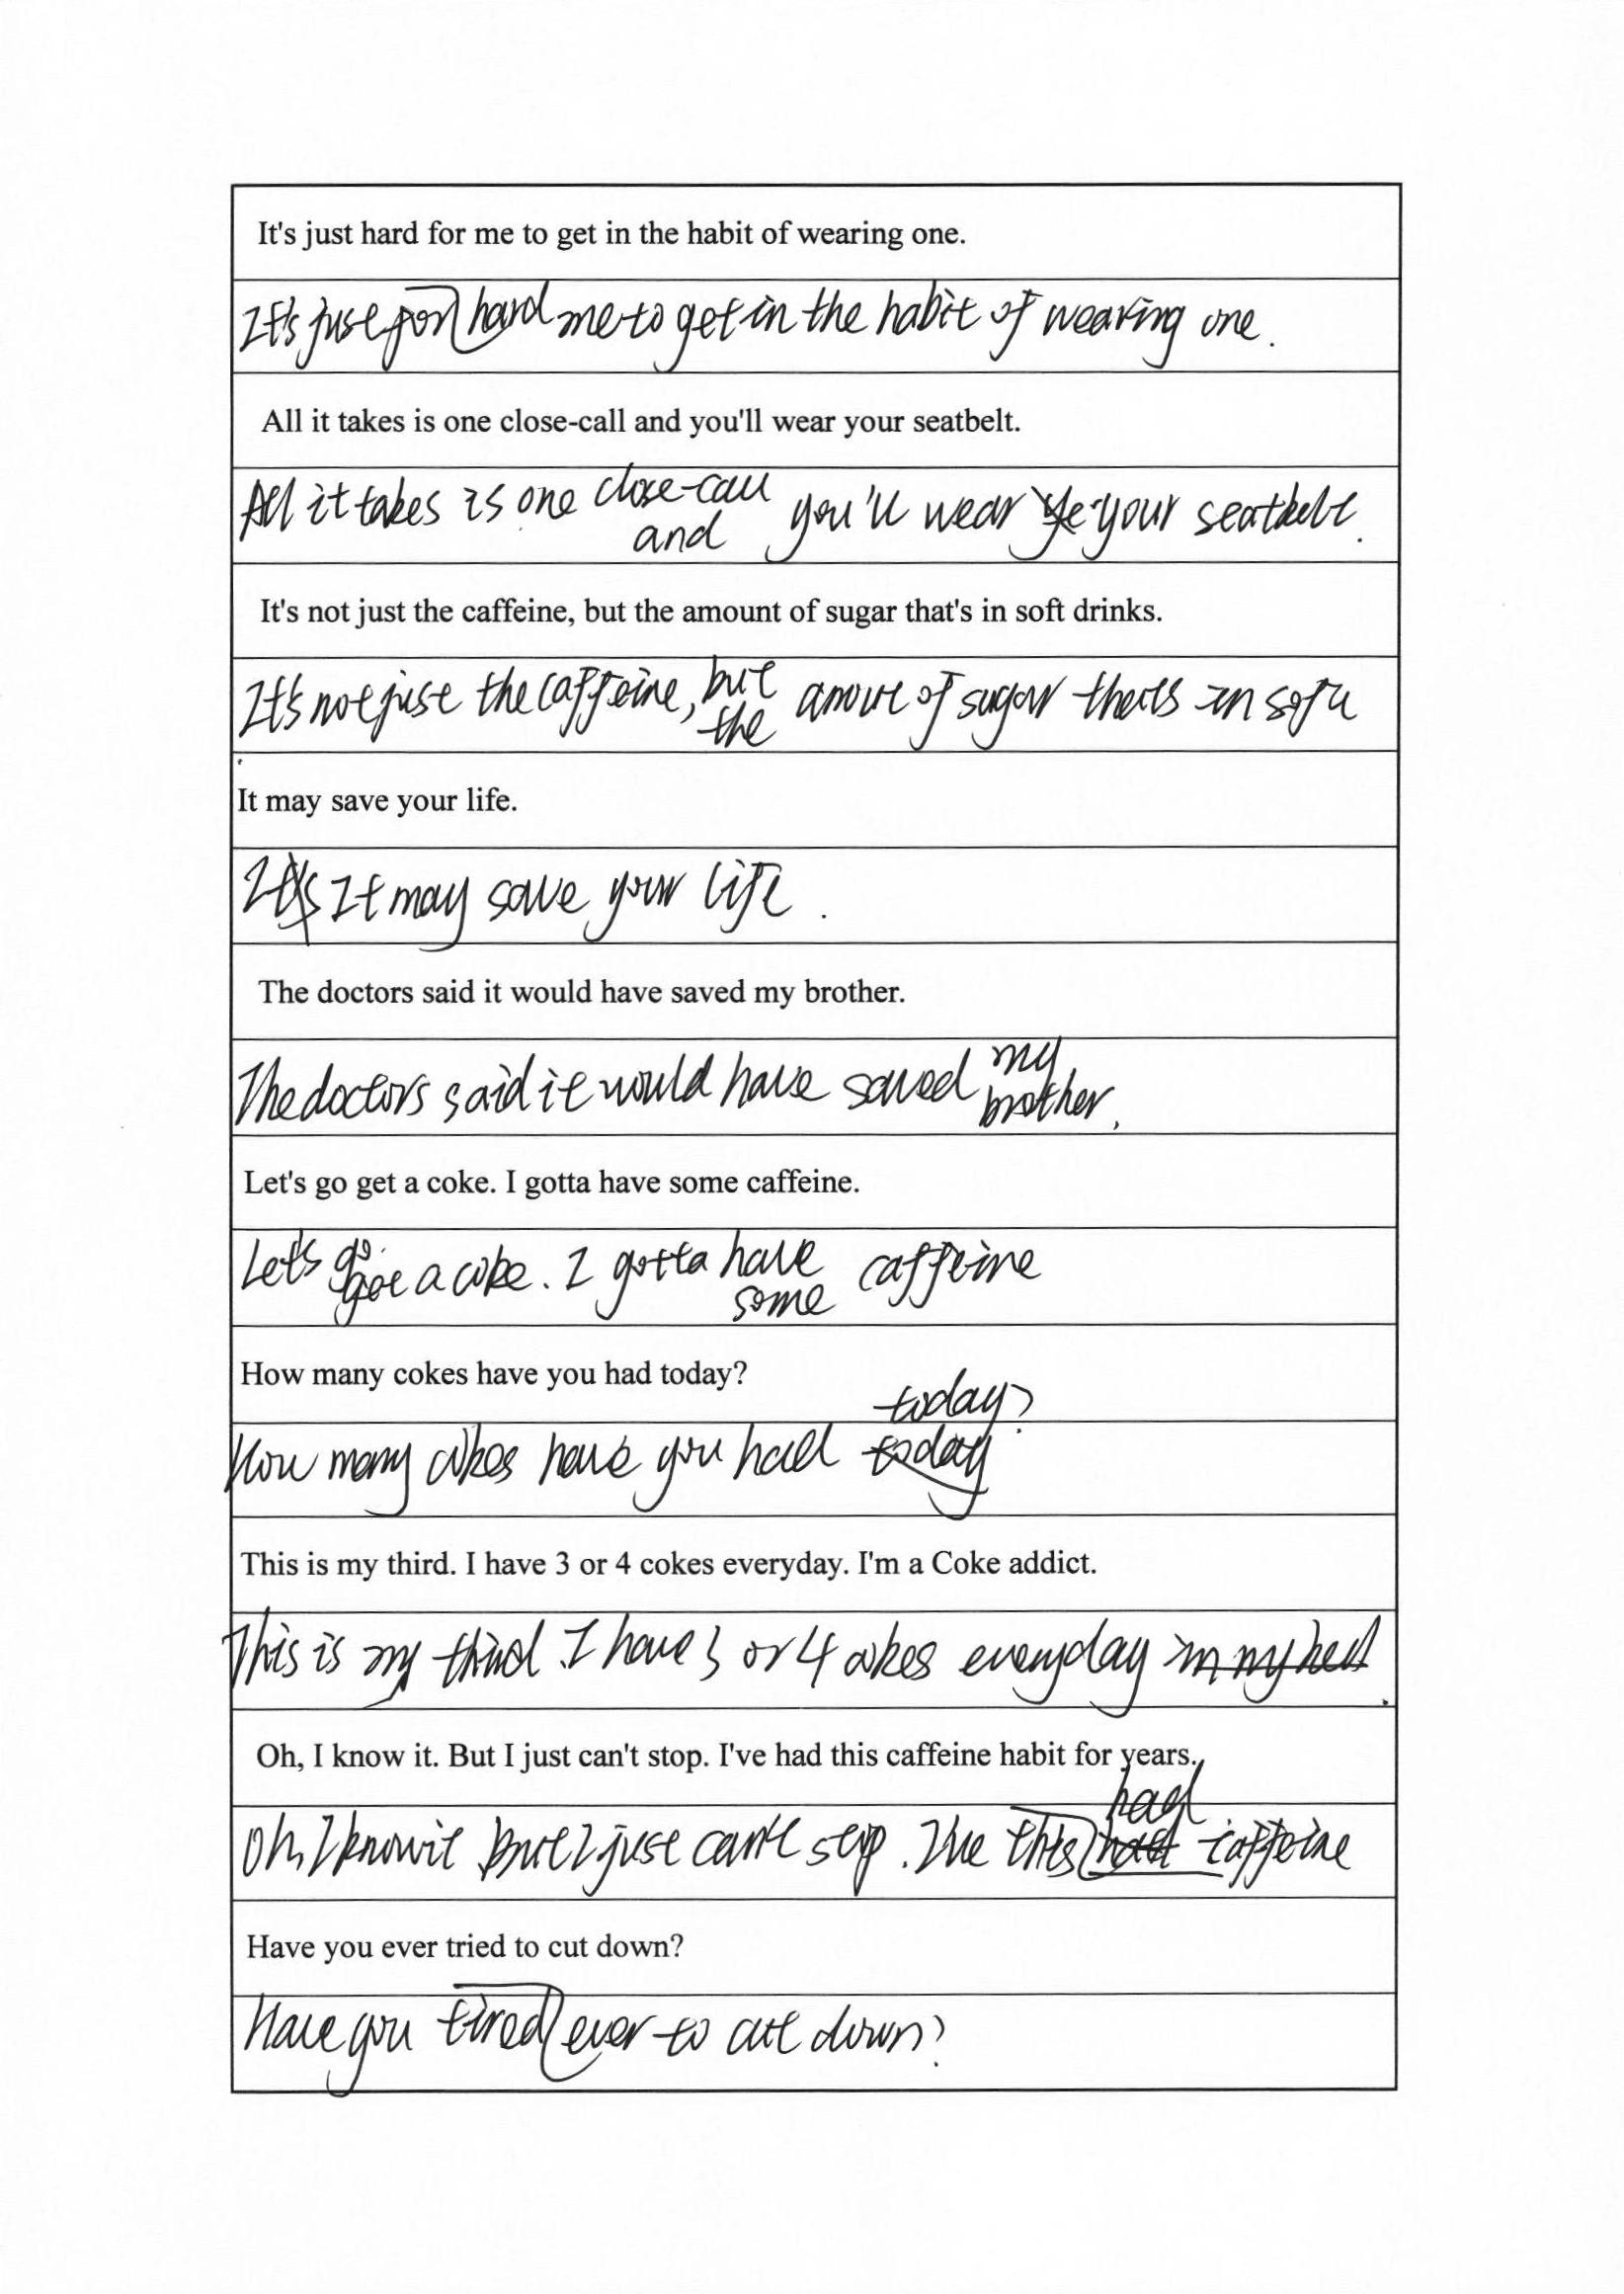 It's just hard for me to get in the habit of wearing one.
It's just hard for me to get in the habit of wearing one.
All it takes is one close-call and you'll wear your seatbelt.
All it takes is one close-call and you'll wear your seatbelt.
It's not just the caffeine, but the amount of sugar that's in soft drinks.
It's not just the caffeine, but the amout of sugar that's in sofu
It may save your life.
It may save your life.
The doctors said it would have saved my brother.
The doctors said it would have saved my brother.
Let's go get a coke. I gotta have some caffeine.
Let's go get a coke. I gotta have some caffeine
How many cokes have you had today?
How many cokes have you had today?
This is my third. I have 3 or 4 cokes everyday. I'm a Coke addict.
This is my third. I have 3 or 4 cokes everyday.
Oh, I know it. But I just can't stop. I've had this caffeine habit for years.
Oh, I know it. But I just can't stop. I've had this caffeine
Have you ever tried to cut down?
Have you ever tired to cut down?